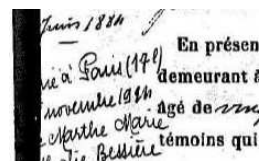 Juin 1884
En présen
à Paris (17e)
demeurant à
novembre 1924
âgé de
Marthe Marie
témoins qui
Bessière